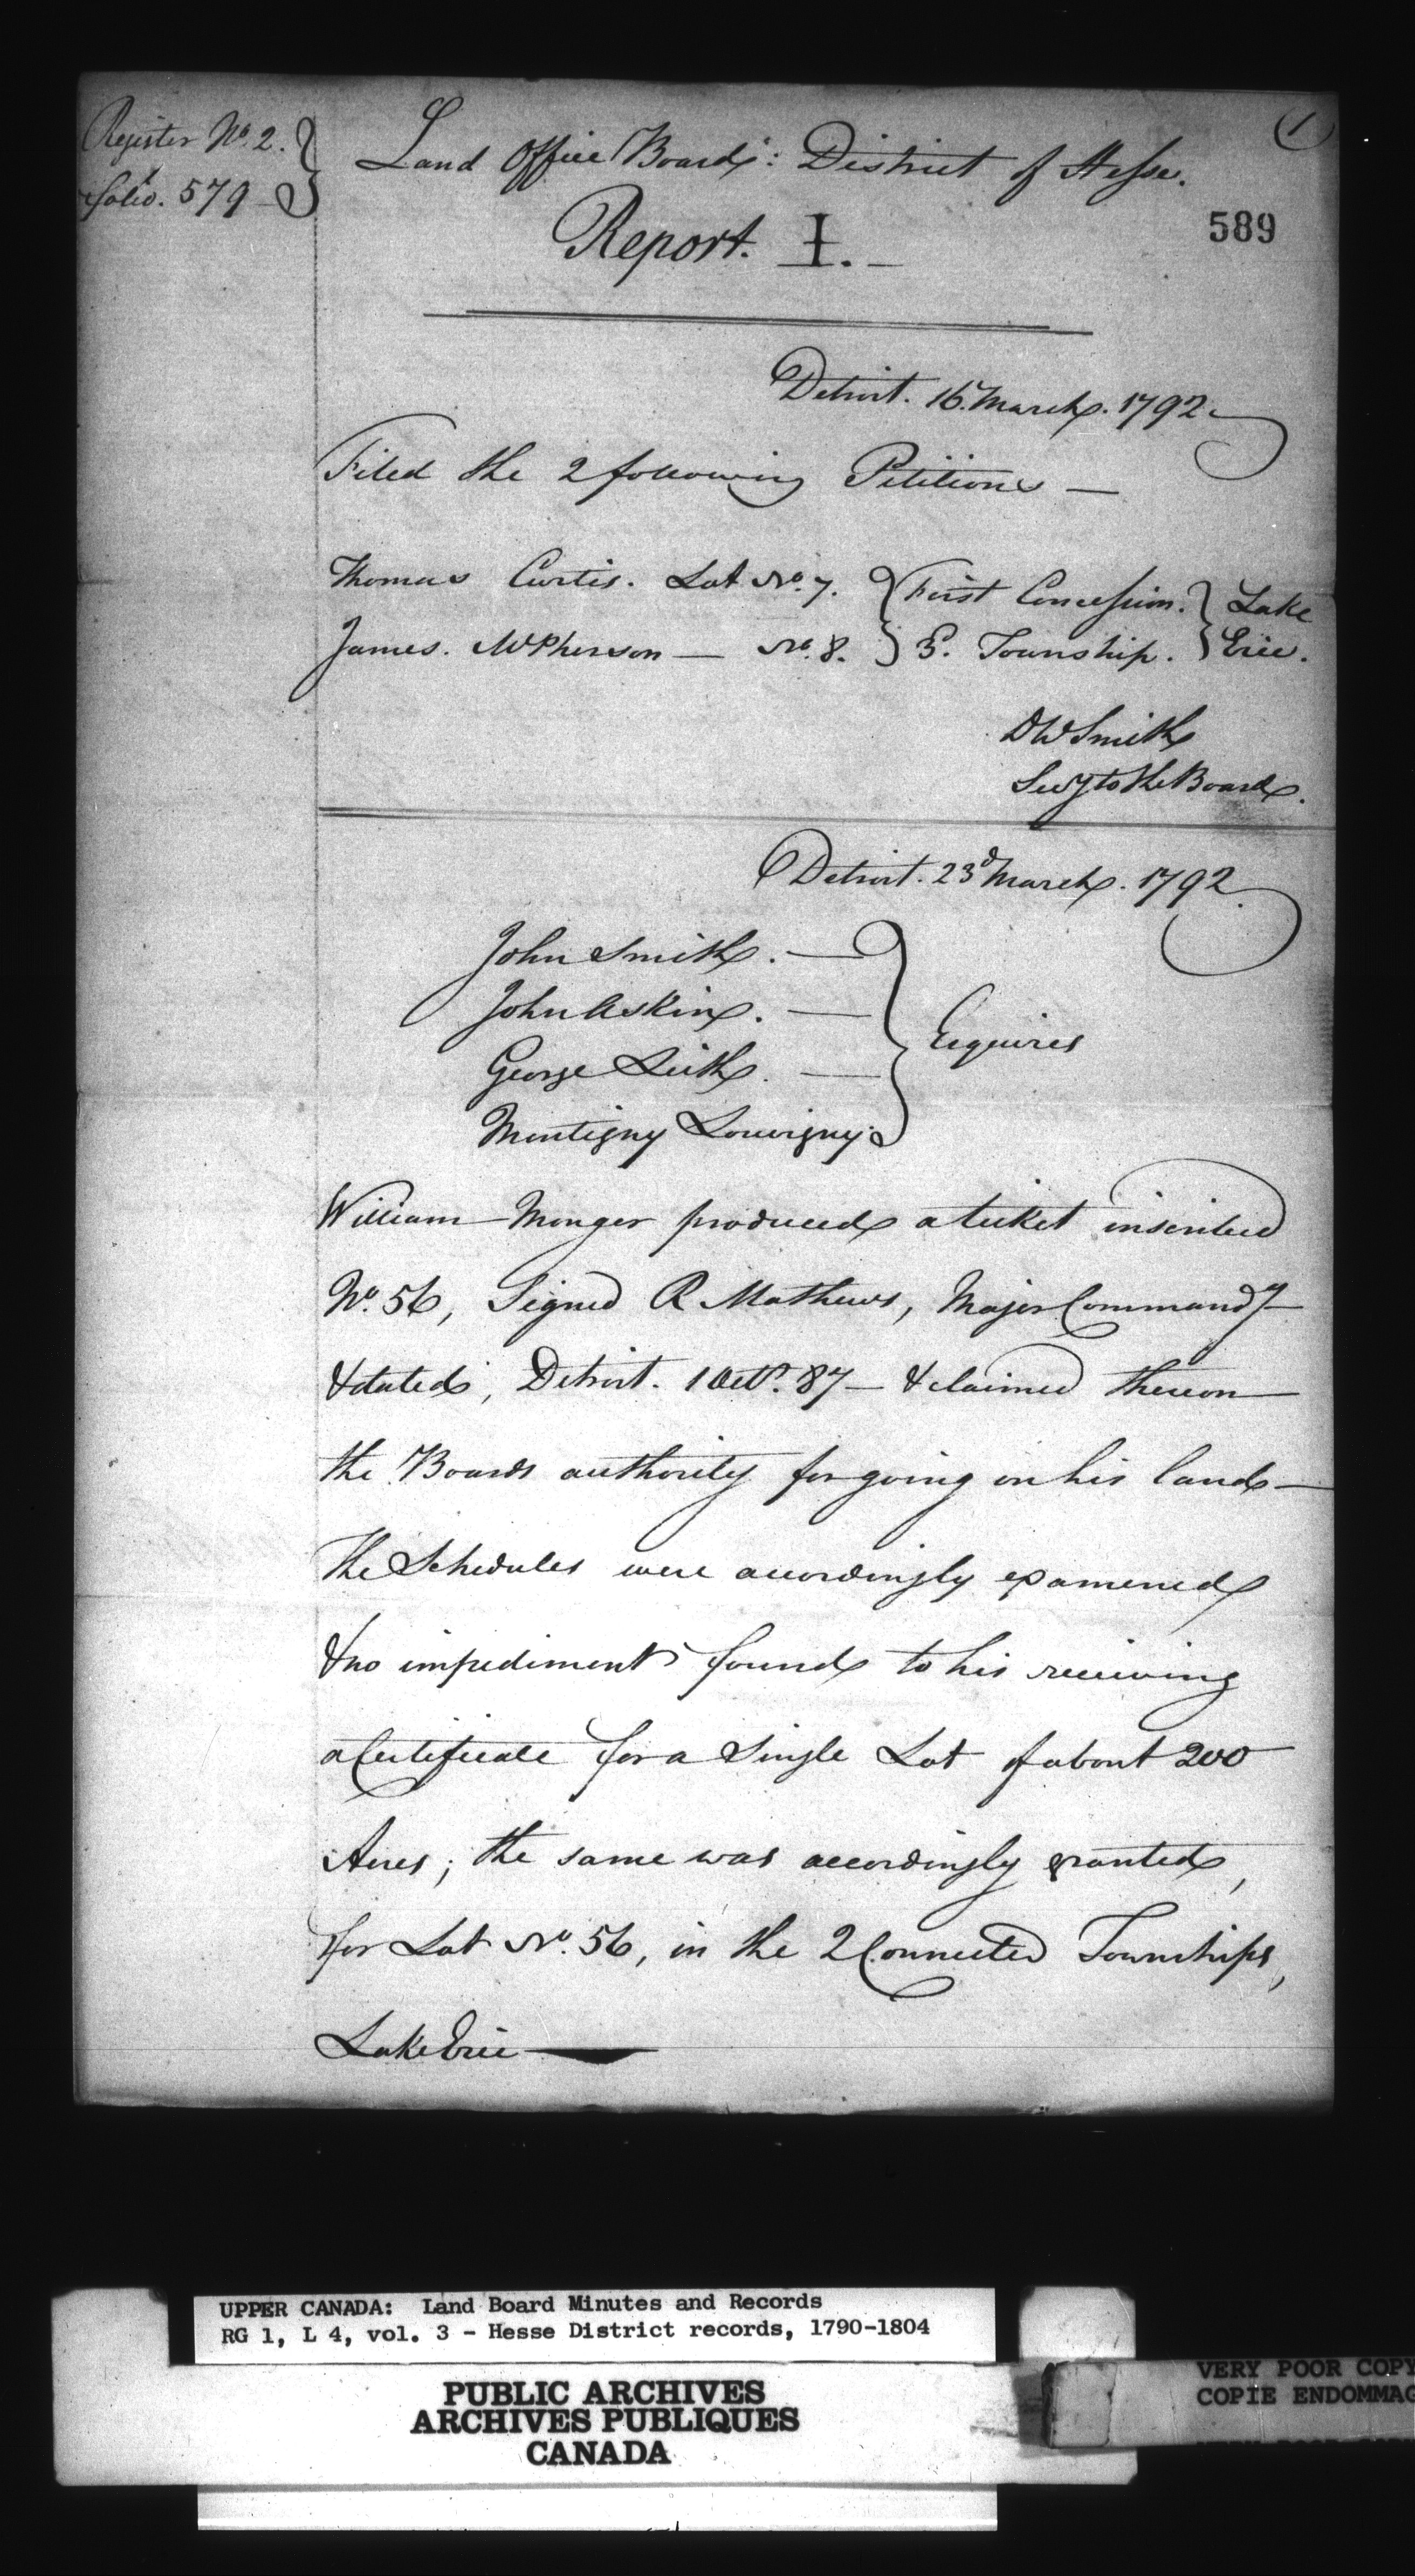 (1)
Register No. 2.
folio. 579
Land Office Board: District of Hesse.
589
Report. I.
Detroit. 16. March. 1792.
Filed the 2 following Petitions —
Thomas Curtis. Lot No. 7. } First Concession. } Lake
James. McPherson — No. 8. } 3. Township. } Erie.
DW Smith
Secy to the Board.
Detroit. 23d March. 1792.
John Smith. —
John Askin. —
George Leith. —
Montigny Louvigny.
} Esquires
William Monger produced a ticket inscribed
No. 56, Signed R Mathews, Major Commandg
& dated, Detroit. 1 Octr. 87 — & claimed thereon
the Boards authority for going on his land —
The Schedules were accordingly examined
& no impediment found to his receiving
a Certificate for a Single Lot of about 200
Acres; the same was accordingly granted,
for Lot No. 56, in the 2 Connected Townships,
Lake Erie
UPPER CANADA: Land Board Minutes and Records
RG 1, L 4, vol. 3 - Hesse District records, 1790-1804
PUBLIC ARCHIVES
ARCHIVES PUBLIQUES
CANADA
VERY POOR COPY
COPIE ENDOMMAG